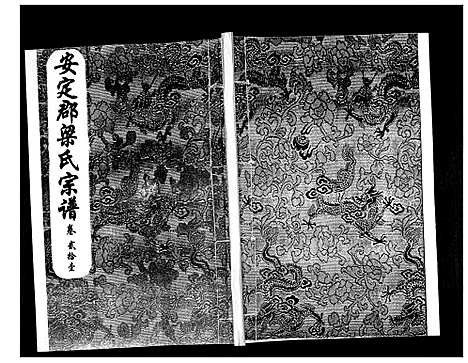 安定郡梁氏宗谱
卷贰拾壹